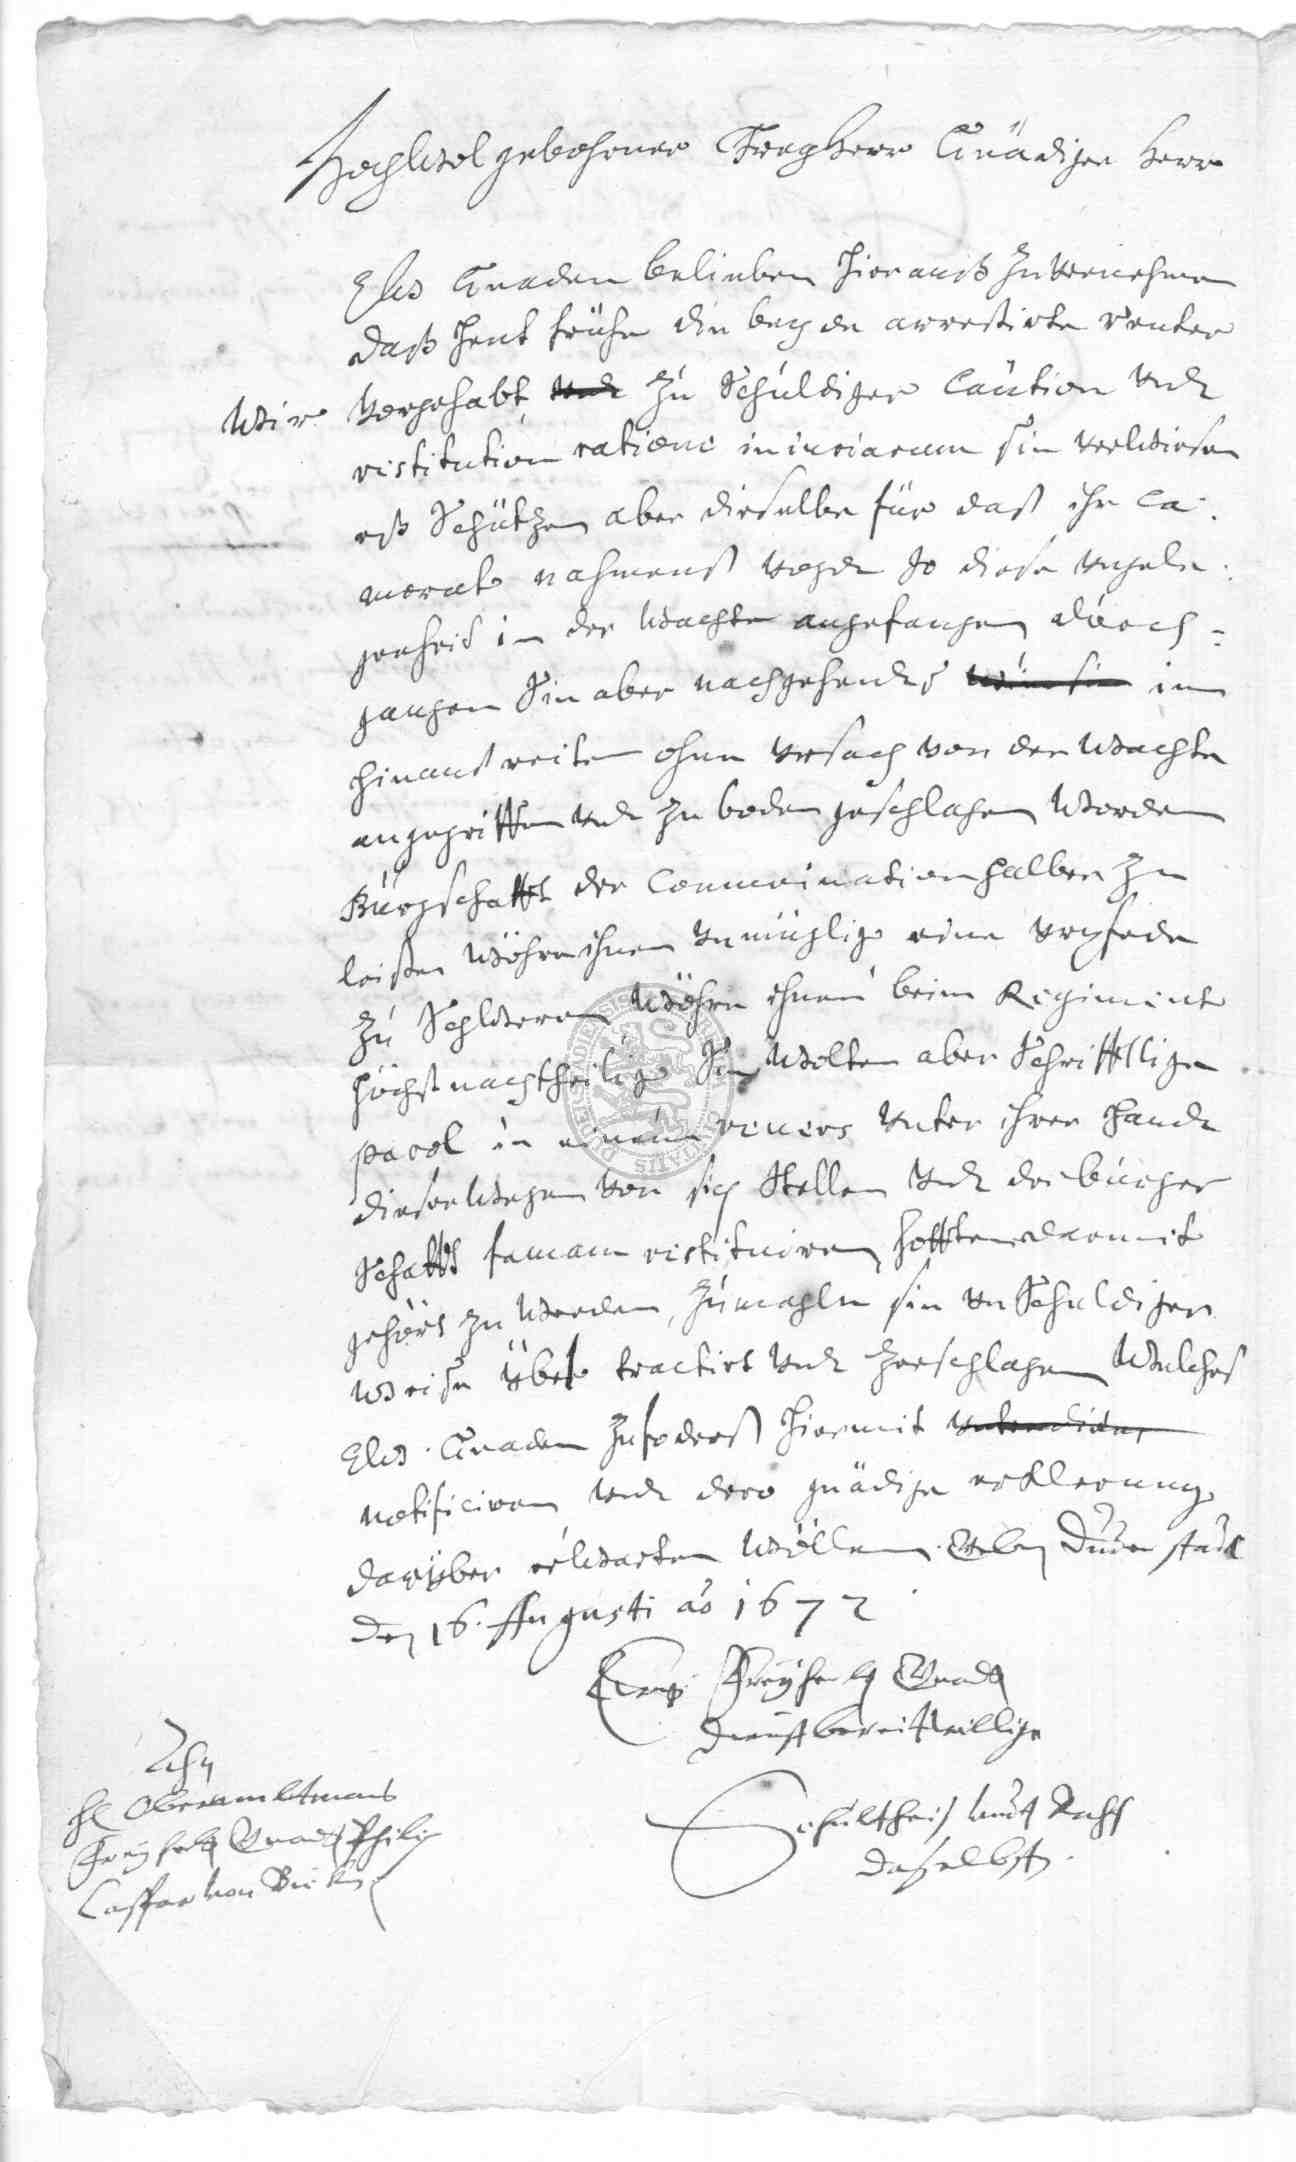 Hochwolgebohrner FreyHerr Gnädiger Herr
Ew Gnaden belieben hierauß zuvernehmen
daß heut frühe die beyde arrestirte reuter
Wir vorgehabt und zu Schuldiger Caution undt
restitution ratione iniuriarum sie verwiesen
eß Schützen aber dieselbe für daß ihr Ca-
merat nahmenß so diese ungele-
genheid in der Wachte angefangen durch-
gangen Sie aber nachgehendes im
hinauß reiten ohne Ursach von der Wachte
angegriffen undt zu boden geschlagen Worden
Bürgschafft der Comminationhalber zu
leisten Wöhre ihnen unmüglig eine Urpfede
zu Schweren Wöhre ihnen beim Regiment
höchst nachtheilig Sie Wolten aber Schrifftlige
parol in einem revers unter ihrer Handt
dieserwegen von sich Stellen undt der bürger
Schafft famam restituiren, hofften darmit
gehört zu Werden, zumahlen sie unSchuldiger
Weise übel tractirt undt zerschlagen Welches
Ew. Gnaden zufoderst hiermit
notificiren undt dero gnädige erklerung
darüber erwarten Wöllen. Geben Duderstadt
den 16. Augusti ao 1672
Ewer Freyherl Gnad
dienstbereitwillige
Schultheis undt Raht
daselbst.
Ahn
H Oberambtmans
Freyherl Gnad Philip
Caspar von Bicken